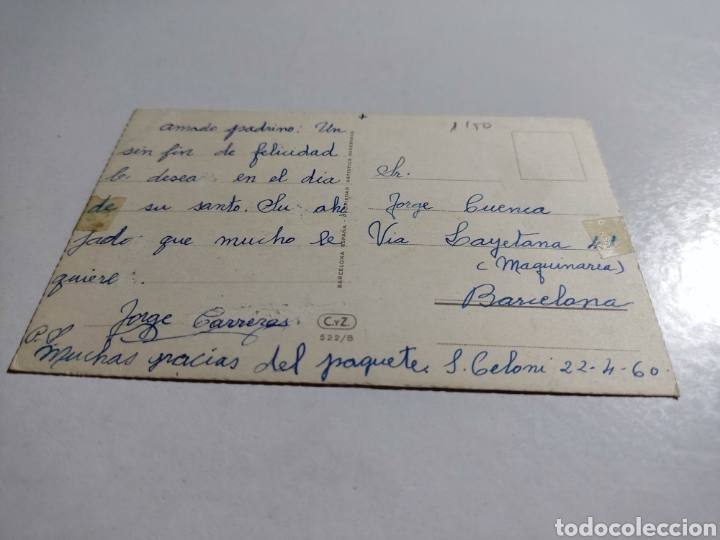 amado padrino: Un
sin fin de felicidad
le desea en el dia
de su santo. Su ahi
jado que mucho le
quiere.
Jorge Carreras.
P.D.
Muchas gracias del paquete. S. Celoni 22-4-60
Sr.
Jorge Cuenca
Via Layetana
(Maquinarea)
Barcelona
BARCELONA ESPAÑA - PROPIEDAD ARTISTICA RESERVADA
C.yZ.
522/B
todocoleccion